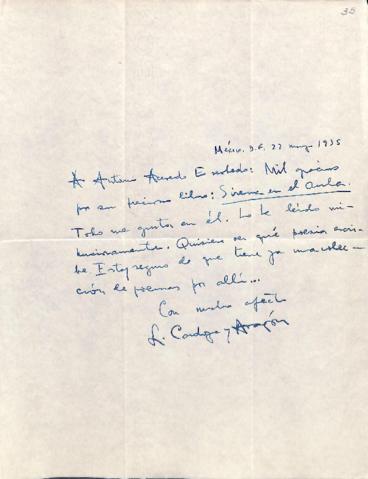 35
México. D.F. 22 mayo 1935
A Arturo Acevedo Escobedo: Mil gracias
por su precioso libro: Sirena en el aula.
Todo me gusta en él. Lo he leído mi-
nuciosamente. Quisiera ver qué poesía escri-
be Estoy seguro de que tiene ya una colec-
ción de poemas por allí...
Con mucho afecto
L. Cardoza y Aragón